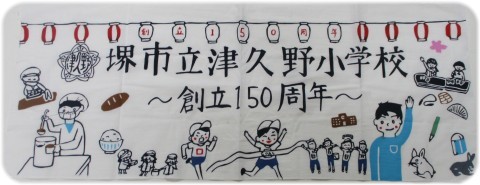 創立150周年
堺市立津久野小学校
～創立150周年～